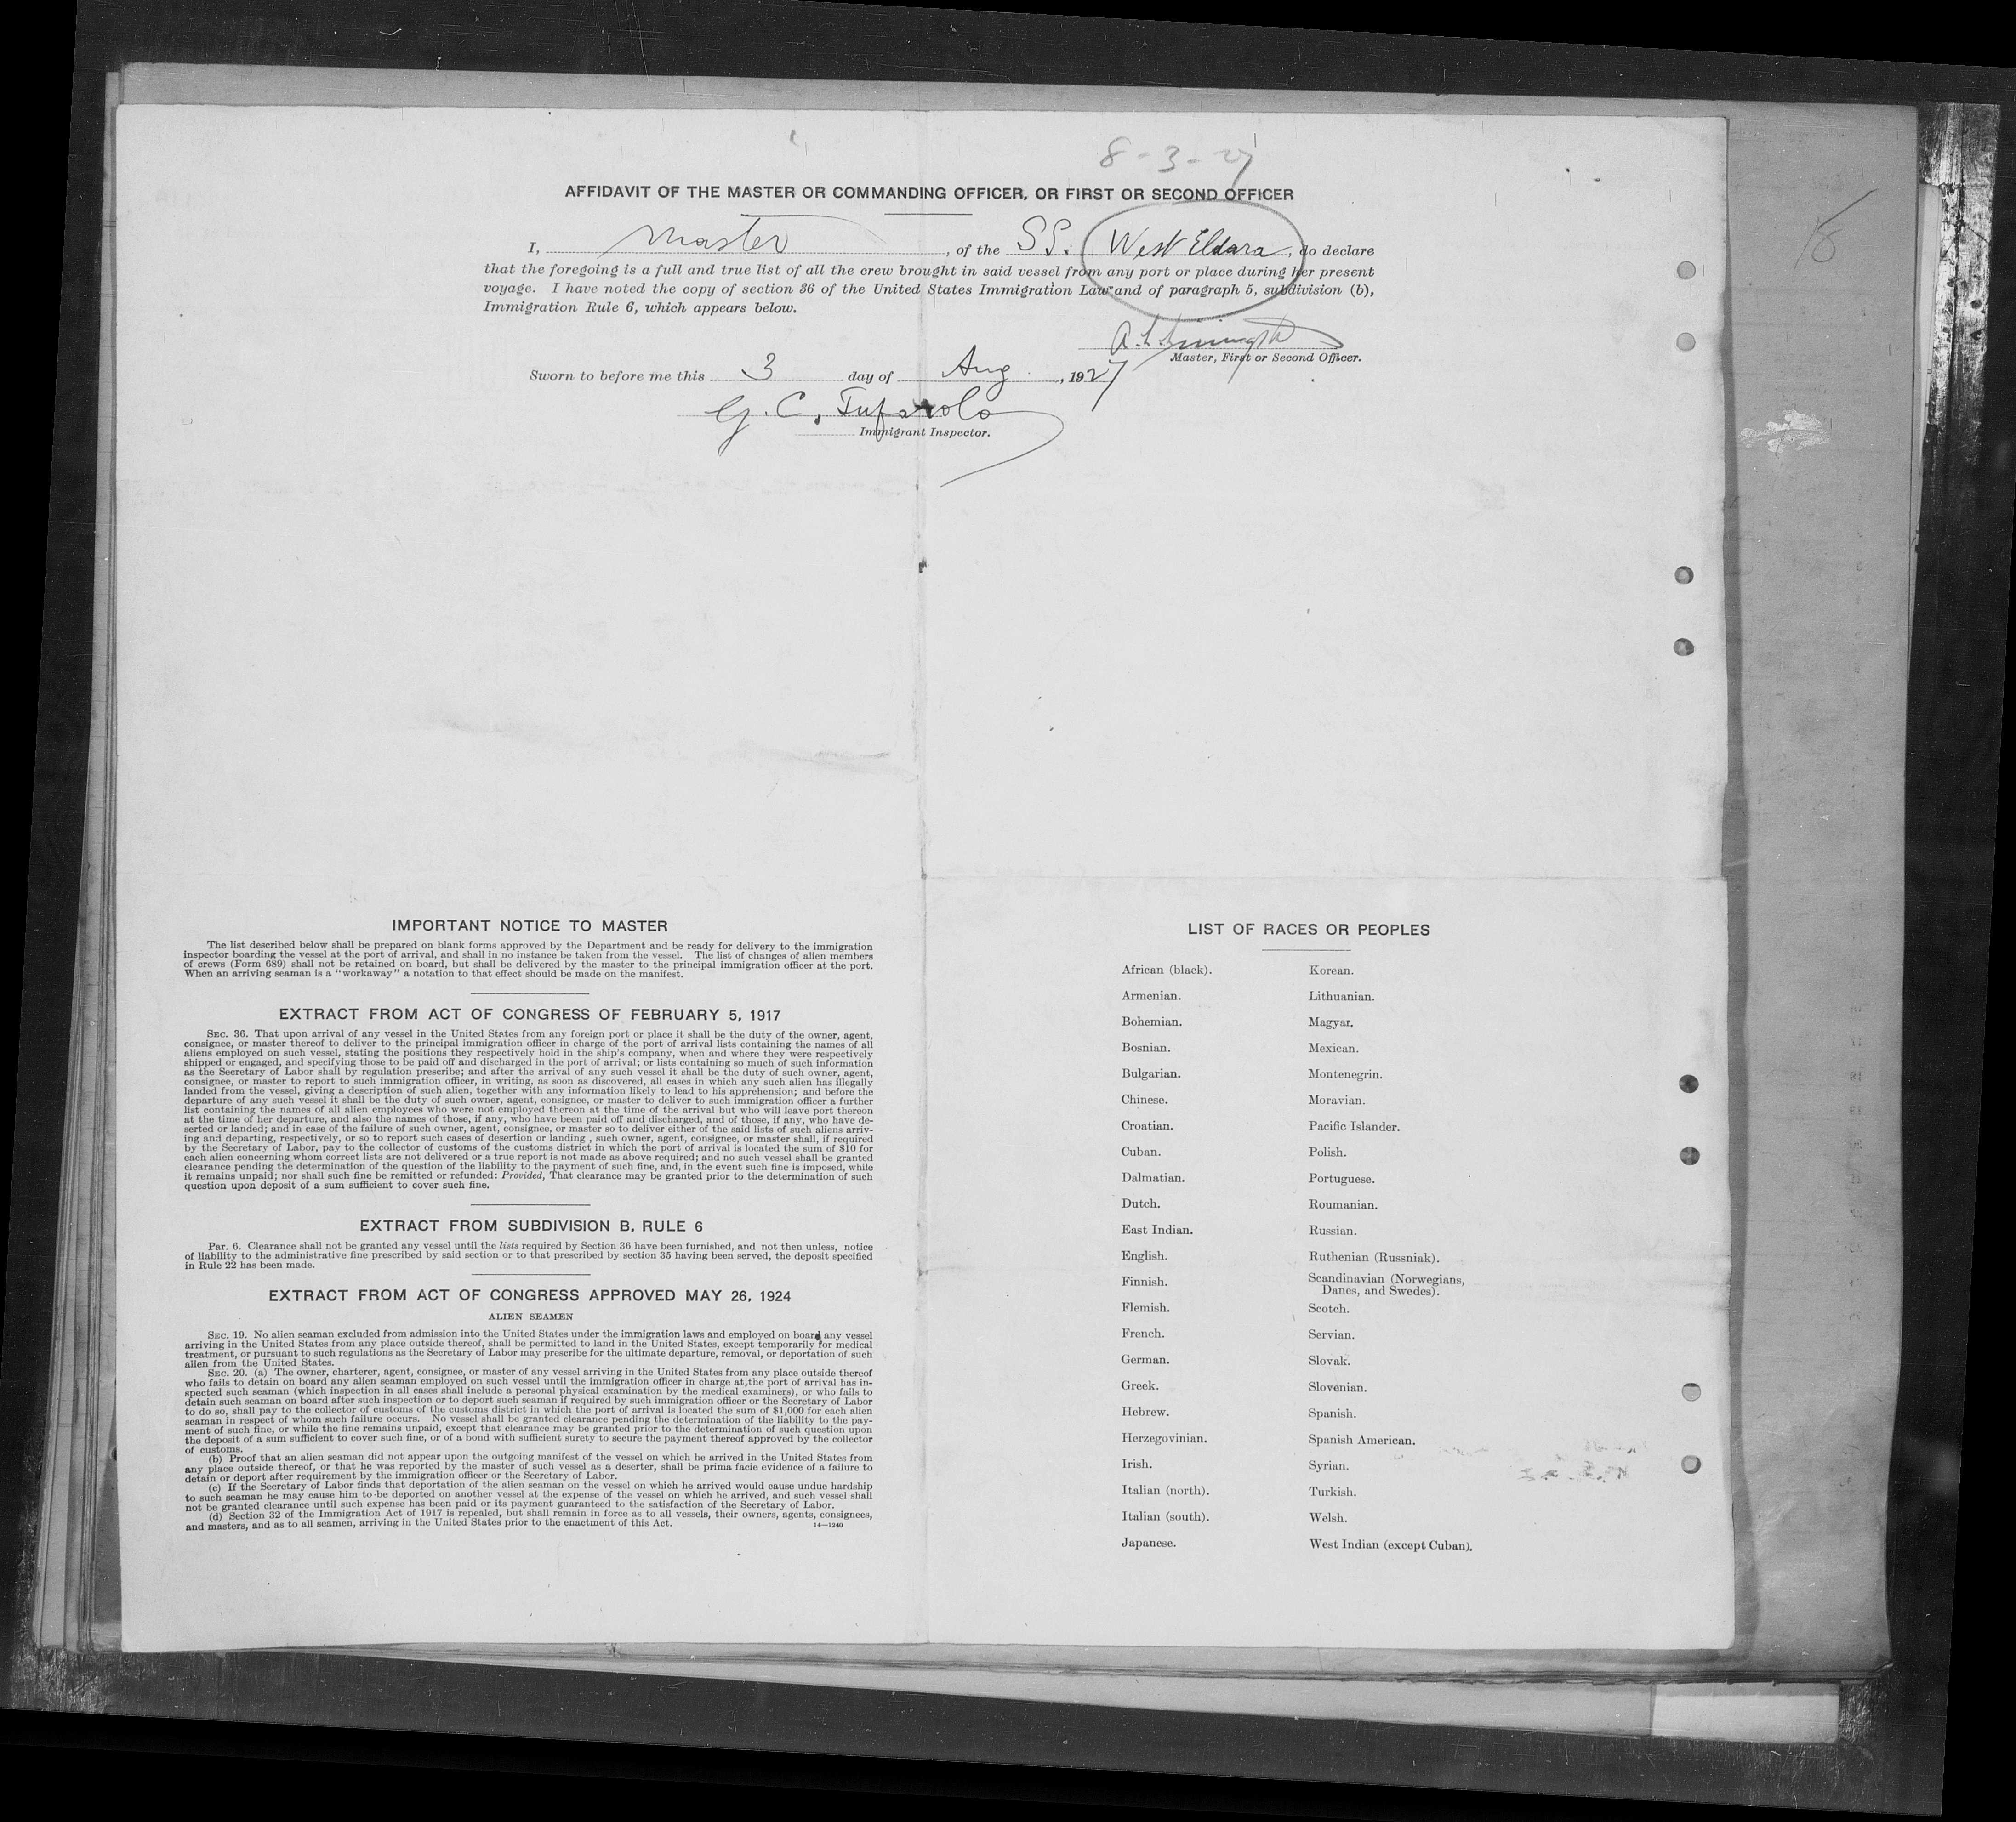 8-3-27
AFFIDAVIT OF THE MASTER OR COMMANDING OFFICER, OR FIRST OR SECOND OFFICER
I, Master, of the SS. West Eldara, do declare
that the foregoing is a full and true list of all the crew brought in said vessel from any port or place during her present
voyage. I have noted the copy of section 36 of the United States Immigration Law and of paragraph 5, subdivision (b),
Immigration Rule 6, which appears below.
Master, First or Second Officer.
Sworn to before me this 3 day of Aug., 1927
G. C. Tufarolo
Immigrant Inspector.
IMPORTANT NOTICE TO MASTER
The list described below shall be prepared on blank forms approved by the Department and be ready for delivery to the immigration
inspector boarding the vessel at the port of arrival, and shall in no instance be taken from the vessel. The list of changes of alien members
of crews (Form 689) shall not be retained on board, but shall be delivered by the master to the principal immigration officer at the port.
When an arriving seaman is a "workaway" a notation to that effect should be made on the manifest.
EXTRACT FROM ACT OF CONGRESS OF FEBRUARY 5, 1917
SEC. 36. That upon arrival of any vessel in the United States from any foreign port or place it shall be the duty of the owner, agent,
consignee, or master thereof to deliver to the principal immigration officer in charge of the port of arrival lists containing the names of all
aliens employed on such vessel, stating the positions they respectively hold in the ship's company, when and where they were respectively
shipped or engaged, and specifying those to be paid off and discharged in the port of arrival; or lists containing so much of such information
as the Secretary of Labor shall by regulation prescribe; and after the arrival of any such vessel it shall be the duty of such owner, agent,
consignee, or master to report to such immigration officer, in writing, as soon as discovered, all cases in which any such alien has illegally
landed from the vessel, giving a description of such alien, together with any information likely to lead to his apprehension; and before the
departure of any such vessel it shall be the duty of such owner, agent, consignee, or master to deliver to such immigration officer a further
list containing the names of all alien employees who were not employed thereon at the time of the arrival but who will leave port thereon
at the time of her departure, and also the names of those, if any, who have been paid off and discharged, and of those, if any, who have de-
serted or landed; and in case of the failure of such owner, agent, consignee, or master so to deliver either of the said lists of such aliens arriv-
ing and departing, respectively, or so to report such cases of desertion or landing , such owner, agent, consignee, or master shall, if required
by the Secretary of Labor, pay to the collector of customs of the customs district in which the port of arrival is located the sum of $10 for
each alien concerning whom correct lists are not delivered or a true report is not made as above required; and no such vessel shall be granted
clearance pending the determination of the question of the liability to the payment of such fine, and, in the event such fine is imposed, while
it remains unpaid; nor shall such fine be remitted or refunded: Provided, That clearance may be granted prior to the determination of such
question upon deposit of a sum sufficient to cover such fine.
EXTRACT FROM SUBDIVISION B, RULE 6
Par. 6. Clearance shall not be granted any vessel until the lists required by Section 36 have been furnished, and not then unless, notice
of liability to the administrative fine prescribed by said section or to that prescribed by section 35 having been served, the deposit specified
in Rule 22 has been made.
EXTRACT FROM ACT OF CONGRESS APPROVED MAY 26, 1924
ALIEN SEAMEN
SEC. 19. No alien seaman excluded from admission into the United States under the immigration laws and employed on board any vessel
arriving in the United States from any place outside thereof, shall be permitted to land in the United States, except temporarily for medical
treatment, or pursuant to such regulations as the Secretary of Labor may prescribe for the ultimate departure, removal, or deportation of such
alien from the United States.
SEC. 20. (a) The owner, charterer, agent, consignee, or master of any vessel arriving in the United States from any place outside thereof
who fails to detain on board any alien seaman employed on such vessel until the immigration officer in charge at the port of arrival has in-
spected such seaman (which inspection in all cases shall include a personal physical examination by the medical examiners), or who fails to
detain such seaman on board after such inspection or to deport such seaman if required by such immigration officer or the Secretary of Labor
to do so, shall pay to the collector of customs of the customs district in which the port of arrival is located the sum of $1,000 for each alien
seaman in respect of whom such failure occurs. No vessel shall be granted clearance pending the determination of the liability to the pay-
ment of such fine, or while the fine remains unpaid, except that clearance may be granted prior to the determination of such question upon
the deposit of a sum sufficient to cover such fine, or of a bond with sufficient surety to secure the payment thereof approved by the collector
of customs.
(b) Proof that an alien seaman did not appear upon the outgoing manifest of the vessel on which he arrived in the United States from
any place outside thereof, or that he was reported by the master of such vessel as a deserter, shall be prima facie evidence of a failure to
detain or deport after requirement by the immigration officer or the Secretary of Labor.
(c) If the Secretary of Labor finds that deportation of the alien seaman on the vessel on which he arrived would cause undue hardship
to such seaman he may cause him to be deported on another vessel at the expense of the vessel on which he arrived, and such vessel shall
not be granted clearance until such expense has been paid or its payment guaranteed to the satisfaction of the Secretary of Labor.
(d) Section 32 of the Immigration Act of 1917 is repealed, but shall remain in force as to all vessels, their owners, agents, consignees,
and masters, and as to all seamen, arriving in the United States prior to the enactment of this Act.
14—1240
LIST OF RACES OR PEOPLES
African (black).
Armenian.
Bohemian.
Bosnian.
Bulgarian.
Chinese.
Croatian.
Cuban.
Dalmatian.
Dutch.
East Indian.
English.
Finnish.
Flemish.
French.
German.
Greek.
Hebrew.
Herzegovinian.
Irish.
Italian (north).
Italian (south).
Japanese.
Korean.
Lithuanian.
Magyar.
Mexican.
Montenegrin.
Moravian.
Pacific Islander.
Polish.
Portuguese.
Roumanian.
Russian.
Ruthenian (Russniak).
Scandinavian (Norwegians,
Danes, and Swedes).
Scotch.
Servian.
Slovak.
Slovenian.
Spanish.
Spanish American.
Syrian.
Turkish.
Welsh.
West Indian (except Cuban).